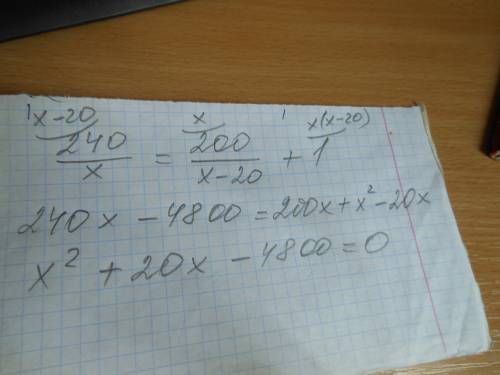 x-20 x x(x-20)
240/x = 200/(x-20) + 1
240x - 4800 = 200x + x² - 20x
x² + 20x - 4800 = 0